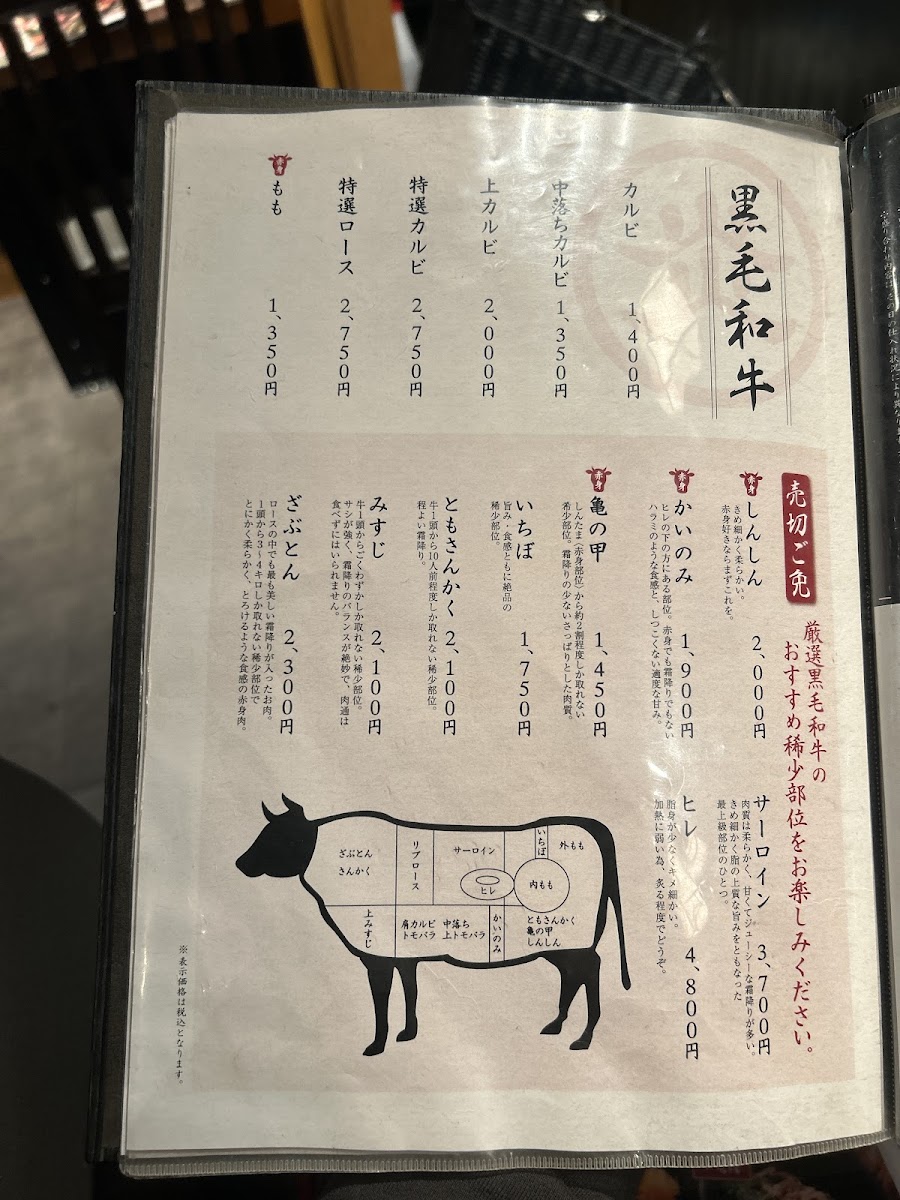 黒毛和牛
カルビ 1、400円
中落ちカルビ 1、350円
上カルビ 2、000円
特選カルビ 2、750円
特選ロース 2、750円
赤身
もも 1、350円
売切ご免
厳選黒毛和牛の
おすすめ稀少部位をお楽しみください。
赤身
しんしん 2、000円
きめ細かく柔らかい。
赤身好きならまずこれを。
赤身
かいのみ 1、900円
ヒレの下の方にある部位。赤身でも霜降りでもない
ハラミのような食感と、しつこくない適度な甘み。
赤身
亀の甲 1、450円
しんたま（赤身部位）から約2割程度しか取れない
希少部位。霜降りの少ないさっぱりとした肉質。
いちぼ 1、750円
旨み・食感ともに絶品の
稀少部位。
ともさんかく 2、100円
牛1頭から10人前程度しか取れない稀少部位。
程よい霜降り。
みすじ 2、100円
牛1頭からごくわずかしか取れない稀少部位。
サシが強く、霜降りのバランスが絶妙で、肉通は
食べずにはいられません。
ざぶとん 2、300円
ロースの中でも最も美しい霜降りが入ったお肉。
1頭から3〜4キロしか取れない稀少部位で
とにかく柔らかく、とろけるような食感の赤身肉。
サーロイン 3、700円
肉質は柔らかく、甘くてジューシーな霜降りが多い。
きめ細かく脂の上質な旨みをともなった
最上級部位のひとつ。
ヒレ 4、800円
脂身が少なくキメ細かい。
加熱に弱い為、炙る程度でどうぞ。
ざぶとん
さんかく
リブロース
サーロイン
ヒレ
いちぼ
外もも
内もも
上みすじ
肩カルビ
トモバラ
中落ち
上トモバラ
かいのみ
ともさんかく
亀の甲
しんしん
※表示価格は税込となります。